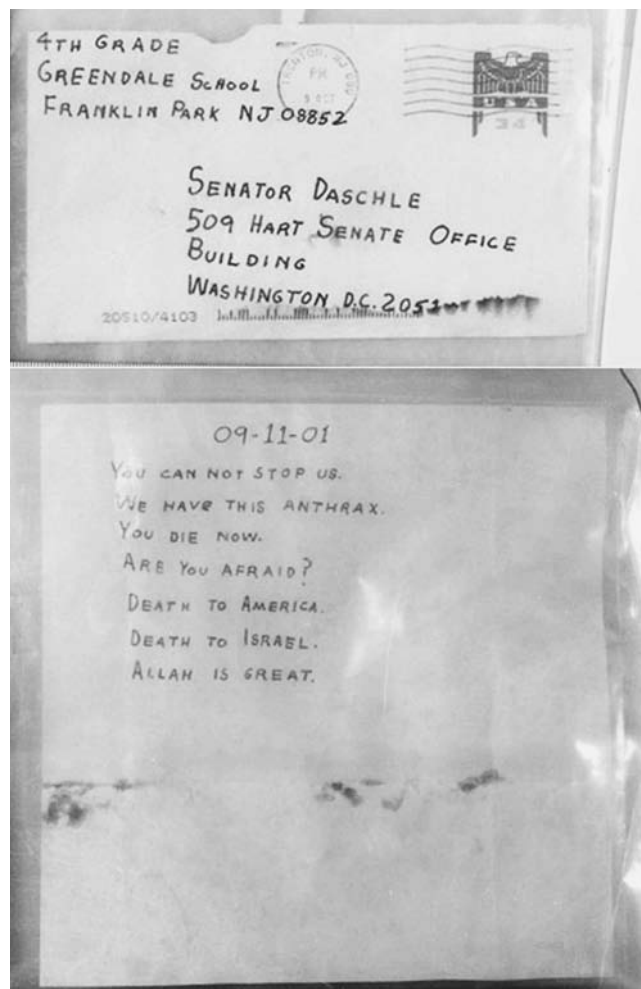 4TH GRADE
GREENDALE SCHOOL
FRANKLIN PARK NJ 08852
TRENTON, NJ
PM
9 OCT
USA
34
SENATOR DASCHLE
509 HART SENATE OFFICE
BUILDING
WASHINGTON D.C. 2051
20510/4103
09-11-01
YOU CAN NOT STOP US.
WE HAVE THIS ANTHRAX.
YOU DIE NOW.
ARE YOU AFRAID?
DEATH TO AMERICA.
DEATH TO ISRAEL.
ALLAH IS GREAT.